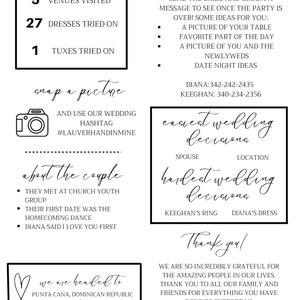 VENUES VISITED
27 DRESSES TRIED ON
1 TUXES TRIED ON
snap a picture
AND USE OUR WEDDING
HASHTAG
#LAUVERHANDINMINE
about the couple
• THEY MET AT CHURCH YOUTH
GROUP
• THEIR FIRST DATE WAS THE
HOMECOMING DANCE
• DIANA SAID I LOVE YOU FIRST
we are headed to
PUNTA CANA, DOMINICAN REPUBLIC
MESSAGE TO SEE ONCE THE PARTY IS
OVER! SOME IDEAS FOR YOU:
• A PICTURE OF YOUR TABLE
• FAVORITE PART OF THE DAY
• A PICTURE OF YOU AND THE
NEWLYWEDS
• DATE NIGHT IDEAS
DIANA:342-242-2435
KEEGHAN: 340-234-2356
easiest wedding
decisions
SPOUSE LOCATION
hardest wedding
decisions
KEEGHAN'S RING DIANA'S DRESS
Thank you!
WE ARE SO INCREDIBLY GRATEFUL FOR
THE AMAZING PEOPLE IN OUR LIVES.
THANK YOU TO ALL OUR FAMILY AND
FRIENDS FOR EVERYTHING YOU HAVE